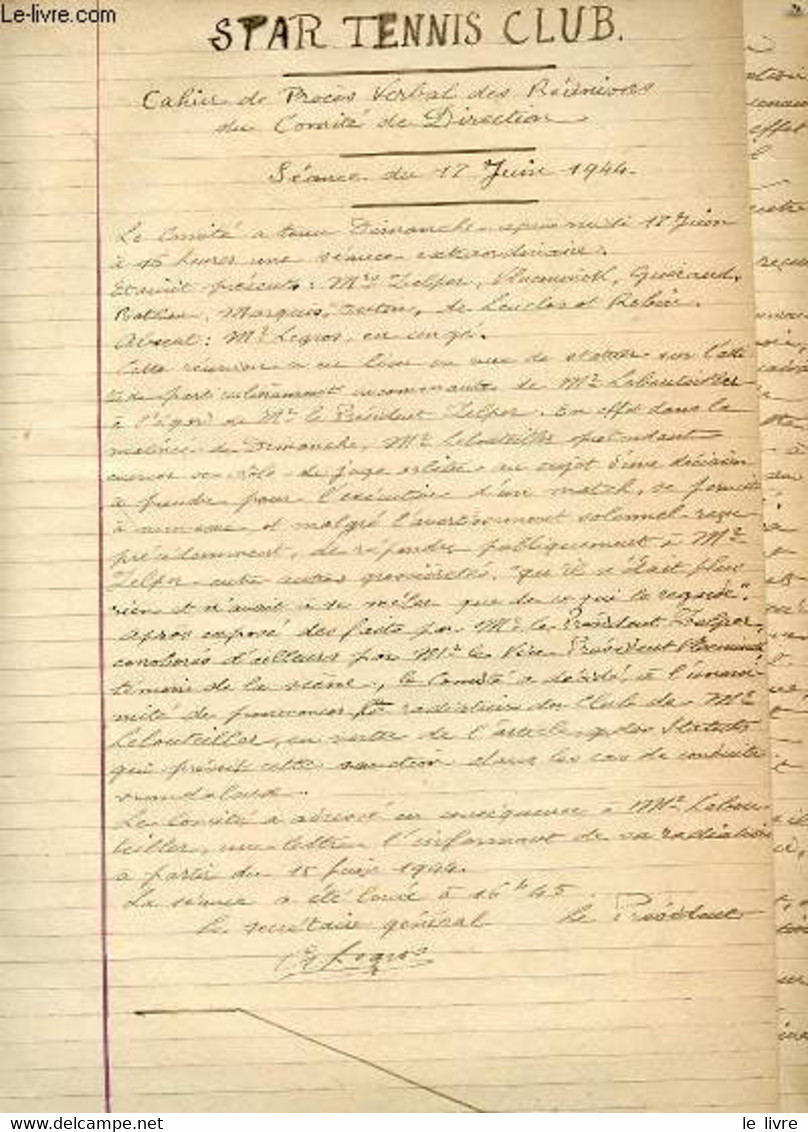 Le-livre.com
STAR TENNIS CLUB.
Cahier de Procès Verbal des Réunions
du Comité de Direction
Séance du 17 Juin 1944.
Le Comité a tenu Dimanche après midi 18 Juin
à 16 heures une séance extraordinaire.
Etaient présents: Mrs Zelper, Guéraud,
Marques, de et
Absent: Mr Legros, en congé.
Cette réunion a eu lieu en vue de statuer sur l'atti
tude particulièrement inconvenante de Mr Lebouteiller
à l'égard de Mr le Président Zelper. En effet dans la
matinée de Dimanche, Mr Lebouteiller prétendant
exercer ce rôle de juge arbitre au sujet d'une décision
à prendre pour l'exécution d'un match, se permit
à nouveau et malgré l'avertissement solennel reçu
précédemment, de répondre publiquement à Mr
Zelper entre autres grossièretés, "qu'il n'était plus
rien et n'avait à se mêler que de ce qui le regarde".
Après exposé des faits par Mr le Président Zelper,
corroborés d'ailleurs par Mr le Vice Président
témoin de la scène, le Comité a décidé, à l'unani
mité de prononcer la radiation du Club de Mr
Lebouteiller, en vertu de l'article des Statuts
qui prévoit cette sanction dans les cas de conduite
scandaleuse.
Le Comité a adressé en conséquence à Mr Lebou
teiller, une lettre l'informant de sa radiation
à partir du 15 juin 1944.
La séance a été levée à 16h45.
Le secrétaire général Le Président
Legros
le livre